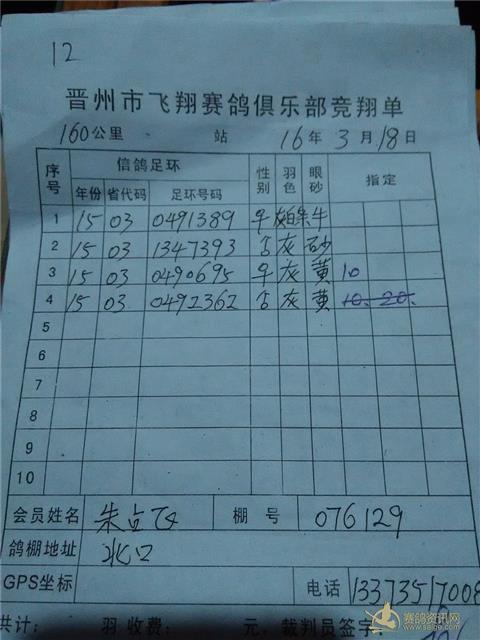 12
晋州市飞翔赛鸽俱乐部竞翔单
160公里 站 16年3月18日
序号 信鸽足环 性别 羽色 眼砂 指定
年份 省代码 足环号码
1 15 03 0491389 平 灰白条 牛
2 15 03 1347393 否 灰 砂
3 15 03 0490695 平 灰 黄 10
4 15 03 0492362 否 灰 黄 10. 20.
5
6
7
8
9
10
会员姓名 朱占飞 棚号 076129
鸽棚地址 北口
GPS坐标 电话 13373517008
共计: 羽 收费: 元 裁判员签字:
赛鸽资讯网
www.saige.com